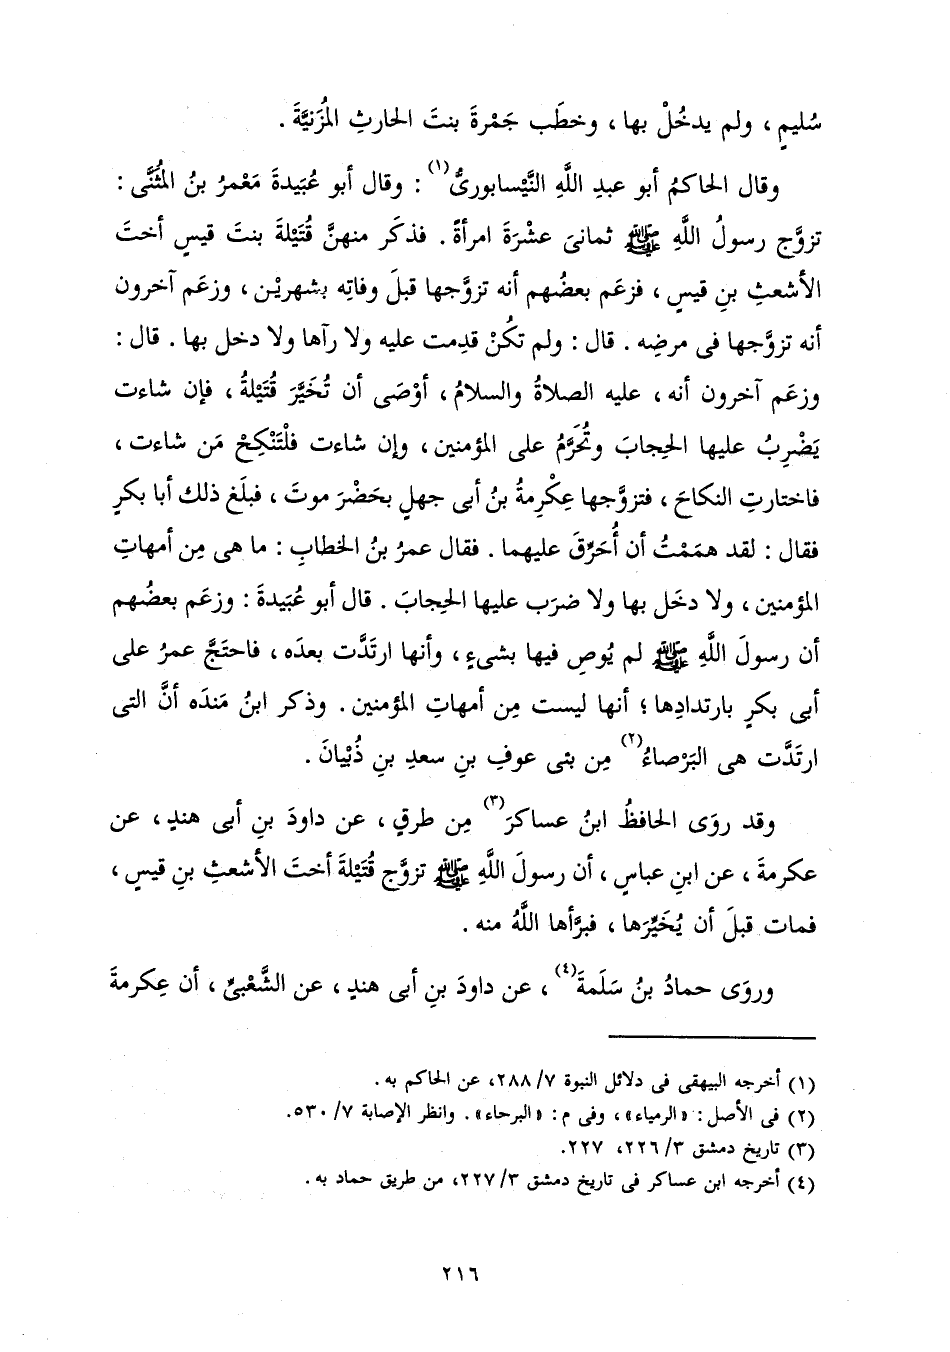 سُليمٍ ، ولم يدخُلْ بها ، وخطَب جَمْرةَ بنتَ الحارثِ المُزَنيَّةَ .
وقال الحاكمُ أبو عبدِ اللَّهِ النَّيْسابورىُّ(١) : وقال أبو عُبَيدةَ مَعْمرُ بنُ المُثَنَّى :
تزوَّج رسولُ اللَّهِ ﷺ ثمانىَ عشْرَةَ امرأةً . فذكَر منهنَّ قُتَيْلةَ بنتَ قيسٍ أختَ
الأشعثِ بنِ قيسٍ ، فزعَم بعضُهم أنه تزوَّجها قبلَ وفاتِه بشهريْن ، وزعَم آخرون
أنه تزوَّجها فى مرضِه . قال : ولم تكُنْ قدِمت عليه ولا رآها ولا دخل بها . قال :
وزعَم آخرون أنه ، عليه الصلاةُ والسلامُ ، أوْصَى أن تُخَيَّرَ قُتَيْلةُ ، فإن شاءت
يَضْرِبُ عليها الحِجابَ وتُحَرَّمُ على المؤمنين ، وإن شاءت فلْتَنْكِحْ مَن شاءت ،
فاختارتِ النكاحَ ، فتزوَّجها عِكْرِمةُ بنُ أبى جهلٍ بحَضْرَ موتَ ، فبلَغ ذلك أبا بكرٍ
فقال : لقد همَمْتُ أن أُحَرِّقَ عليهما . فقال عمرُ بنُ الخطابِ : ما هى مِن أمهاتِ
المؤمنين ، ولا دخَل بها ولا ضرَب عليها الحِجابَ . قال أبو عُبَيدةَ : وزعَم بعضُهم
أن رسولَ اللَّهِ ﷺ لم يُوصِ فيها بشىءٍ ، وأنها ارتَدَّت بعدَه ، فاحتَجَّ عمرُ على
أبى بكرٍ بارتدادِها ؛ أنها ليست مِن أمهاتِ المؤمنين . وذكر ابنُ مَندَه أنَّ التى
ارتَدَّت هى البَرْصاءُ(٢) مِن بنى عوفِ بنِ سعدِ بنِ ذُبْيانَ .
وقد روَى الحافظُ ابنُ عساكرَ(٣) مِن طرقٍ ، عن داودَ بنِ أبى هندٍ ، عن
عكرمةَ ، عن ابنِ عباسٍ ، أن رسولَ اللَّهِ ﷺ تزوَّج قُتَيْلةَ أختَ الأشعثِ بنِ قيسٍ ،
فمات قبلَ أن يُخَيِّرَها ، فبرَّأها اللَّهُ منه .
وروَى حمادُ بنُ سَلَمةَ(٤) ، عن داودَ بنِ أبى هندٍ ، عن الشَّعْبىِّ ، أن عِكرمةَ
(١) أخرجه البيهقى فى دلائل النبوة ٧/ ٢٨٨، عن الحاكم به .
(٢) فى الأصل : «الرمياء» ، وفى م : «البرحاء» . وانظر الإصابة ٧/ ٥٣٠.
(٣) تاريخ دمشق ٣/ ٢٢٦، ٢٢٧.
(٤) أخرجه ابن عساكر فى تاريخ دمشق ٣/ ٢٢٧، من طريق حماد به .
٢١٦